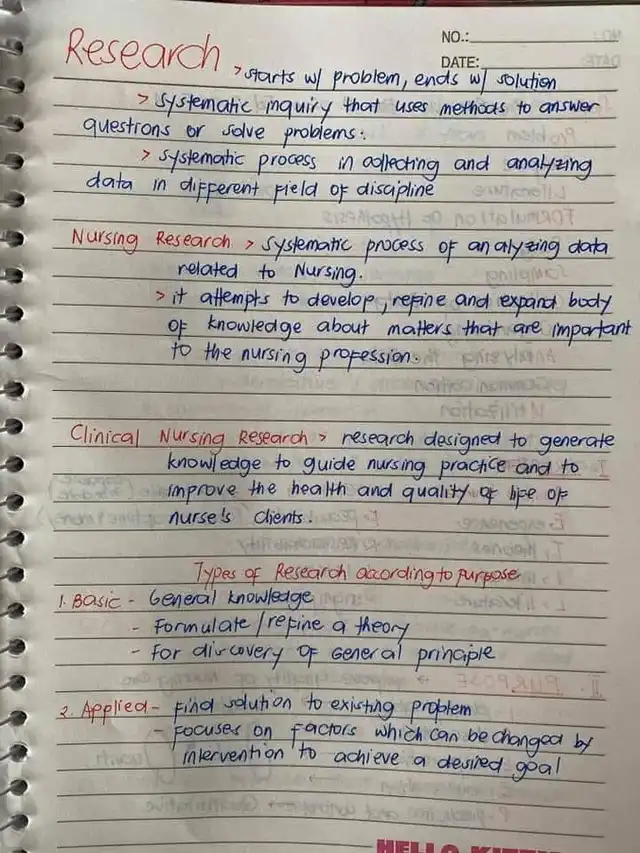 NO.:
DATE:
Research
> starts w/ problem, ends w/ solution
> systematic inquiry that uses methods to answer
questions or solve problems.
> systematic process in collecting and analyzing
data in different field of discipline
Nursing Research > systematic process of analyzing data
related to Nursing.
> it attempts to develop, refine and expand body
of knowledge about matters that are important
to the nursing profession.
Clinical Nursing Research > research designed to generate
knowledge to guide nursing practice and to
improve the health and quality of life of
nurse's clients.
Types of Research according to purpose
1. Basic - General knowledge
- Formulate/refine a theory
- For discovery of General principle
2. Applied - Find solution to existing problem
- Focuses on factors which can be changed by
intervention to achieve a desired goal
HELLO KITTY